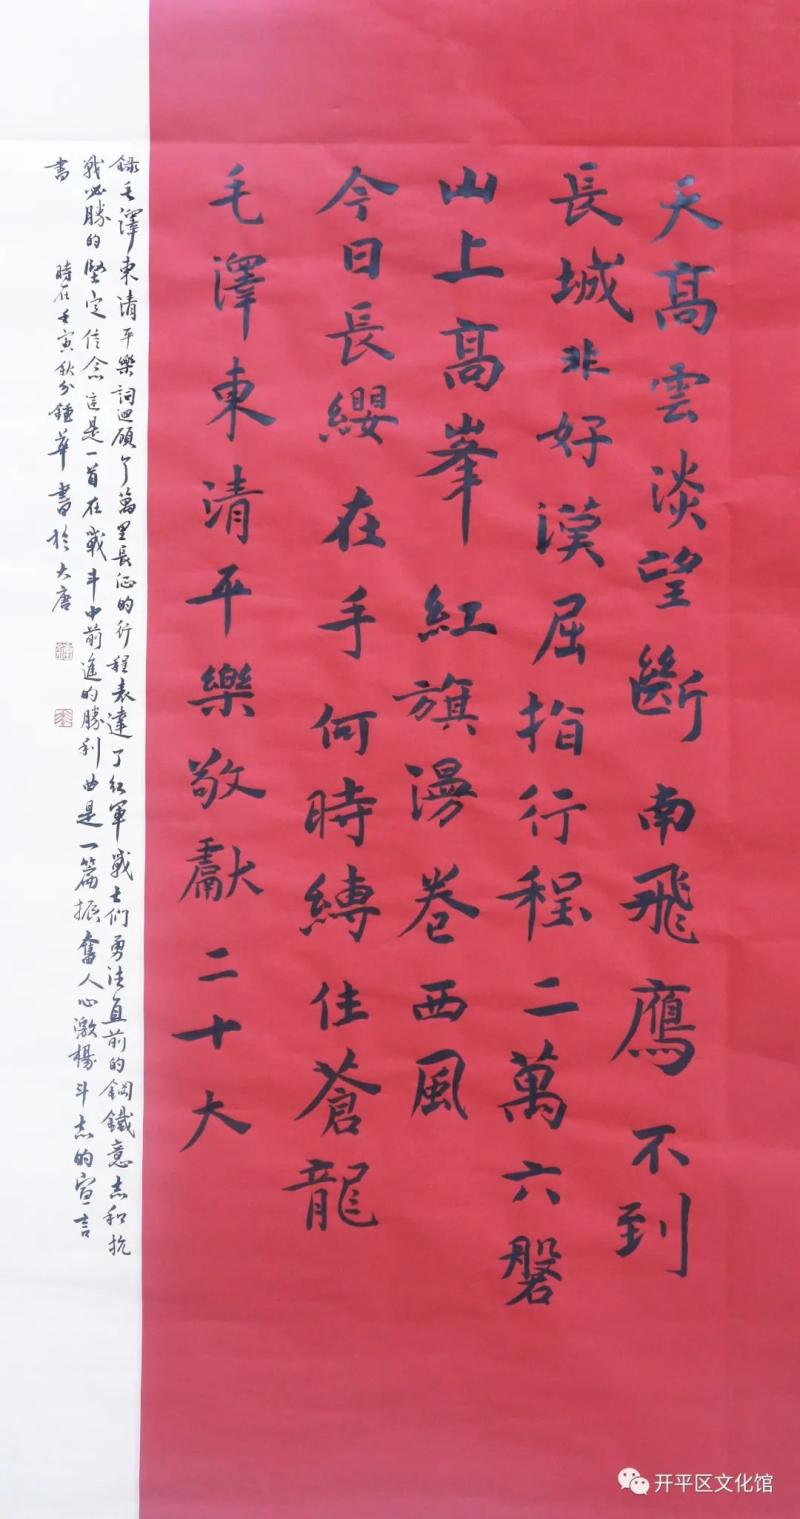 天高雲淡望斷南飛鷹不到
長城非好漢屈指行程二萬六磐
山上高峯紅旗漫卷西風
今日長纓在手何時縛住蒼龍
毛澤東清平樂敬獻二十大
錄毛澤東清平樂詞迴顧了萬里長征的行程表達了紅軍戰士們勇往直前的鋼鐵意志和抗
戰必勝的堅定信念這是一首在戰斗中前進的勝利曲是一篇振奮人心激楊斗志的宣言
書 時在壬寅秋分鍾華書於大唐
开平区文化馆